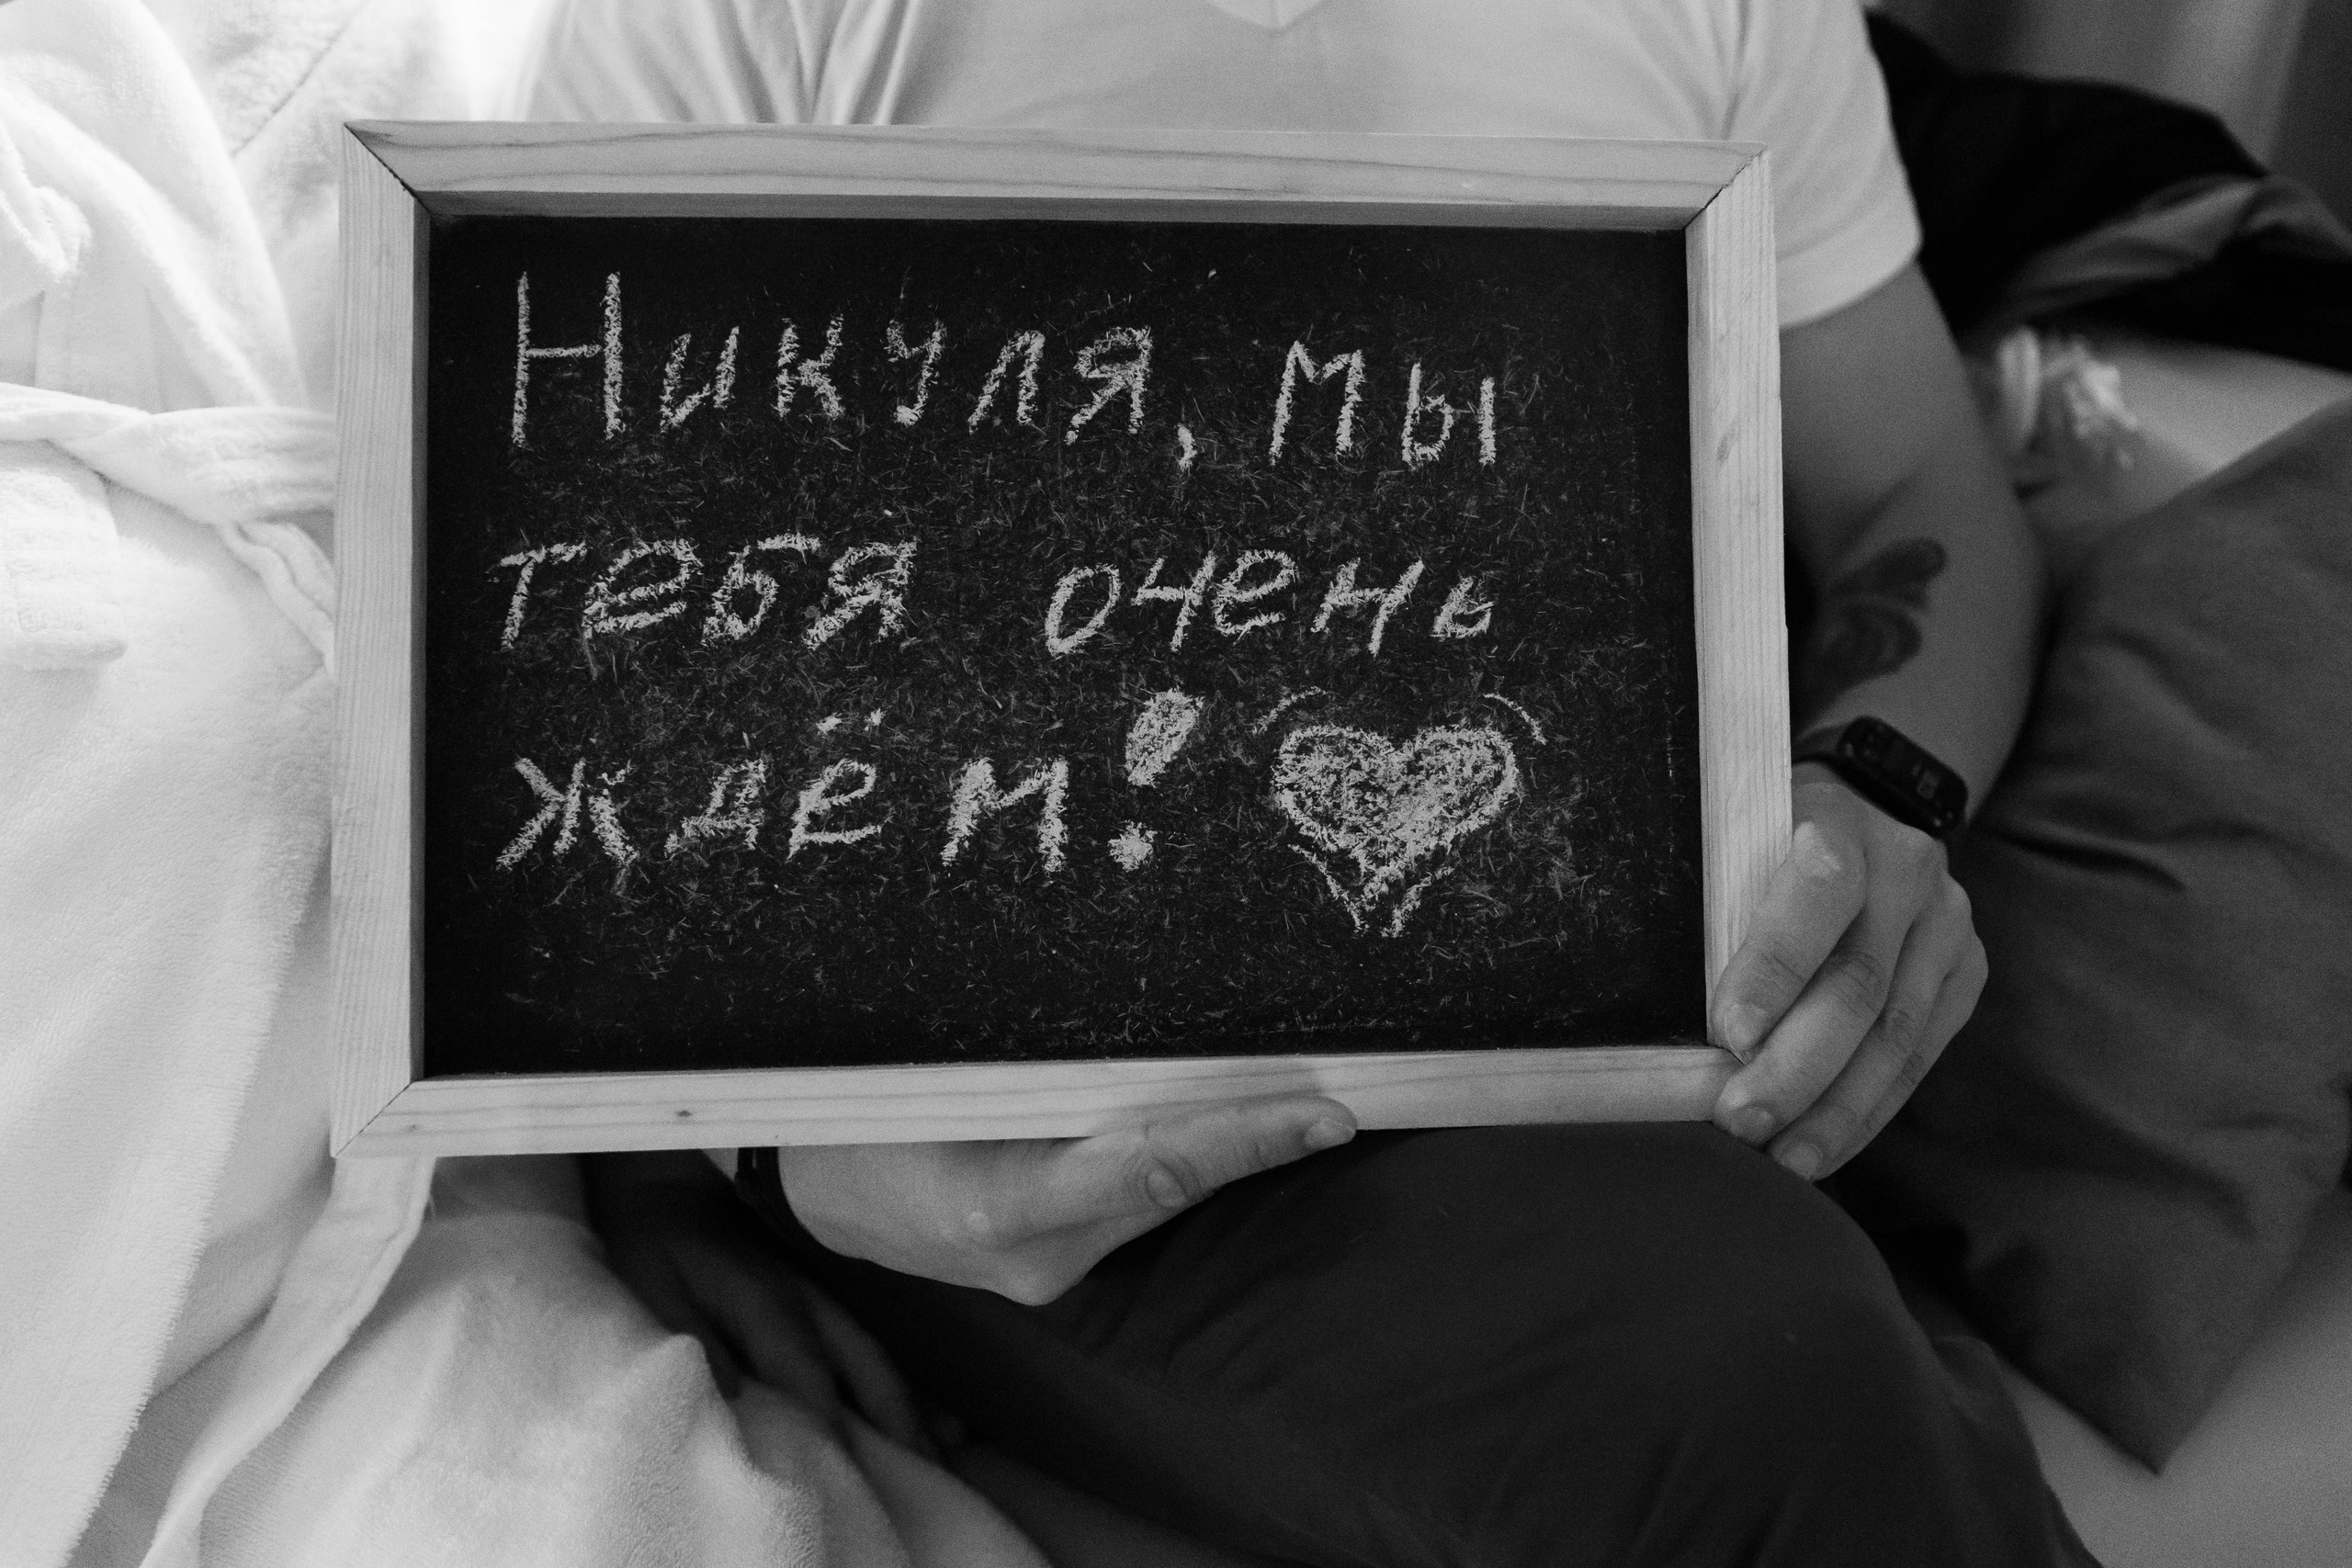 Никуля, мы
тебя очень
ждём!